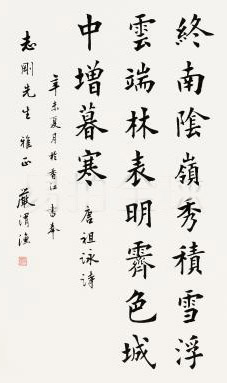 終南陰嶺秀積雪浮
雲端林表明霽色城
中增暮寒 唐祖詠詩
辛未夏月於香江 書奉
志剛先生 雅正 嚴渭漁